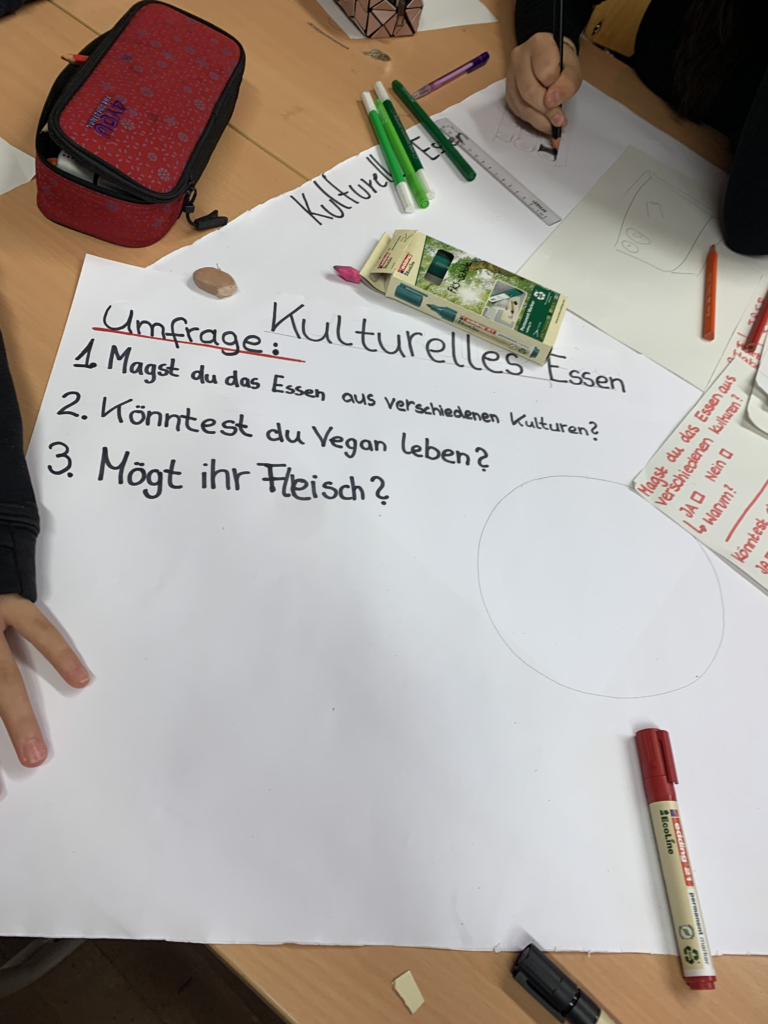 Kulturelles Essen
Umfrage:
1. Magst du das Essen aus verschiedenen Kulturen?
2. Könntest du Vegan leben?
3. Mögt ihr Fleisch?
Kulturell
Magst du das Essen aus
verschiedenen Kulturen?
JA Nein
↳ Warum?
Könntest
Ja
4YOU
edding
edding 21
permanent marker
EcoLine